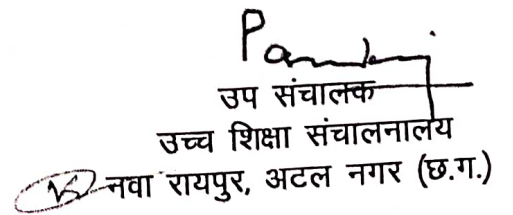 उप संचालक
उच्च शिक्षा संचालनालय
नवा रायपुर, अटल नगर (छ.ग.)